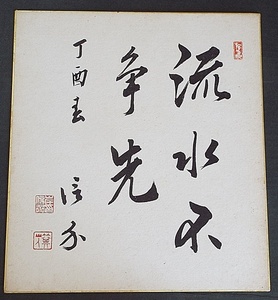 流水不
争先
丁酉春